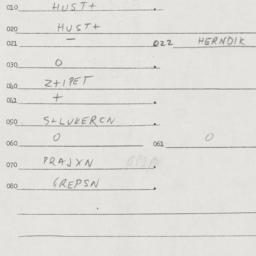 010 HUST+
020 HUST+
021 — 022 HERNDIK
030 O
040 Z+IPET
041 +
050 S+LVKERCN
060 O 061 O
070 PRAJXN
080 GREPSN